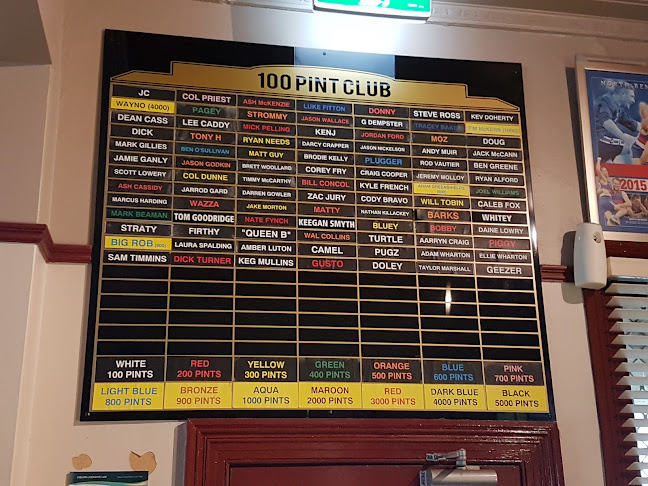 100 PINT CLUB
JC COL PRIEST ASH McKENZIE LUKE FITTON DONNY STEVE ROSS KEV DOHERTY
WAYNO (4000) PAGEY STROMMY JASON WALLACE G DEMPSTER TRACEY BAKER
DEAN CASS LEE CADDY MICK PELLING KENJ JORDAN FORD MOZ DOUG
DICK TONY H RYAN NEEDS DARCY CRAPPER JASON NICKELSON ANDY MUIR JACK McCANN
MARK GILLIES BEN O'SULLIVAN MATT GUY BRODIE KELLY PLUGGER ROD VAUTIER BEN GREENE
JAMIE GANLY JASON GODKIN BRETT WOOLLARD COREY FRY CRAIG COOPER JEREMY MOLLOY RYAN ALFORD
SCOTT LOWERY COL DUNNE TIMMY McCARTHY BILL CONCOL KYLE FRENCH JOEL WILLIAMS
ASH CASSIDY JARROD GARD DARREN GOWLER ZAC JURY CODY BRAVO WILL TOBIN CALEB FOX
MARCUS HARDING WAZZA JAKE MORTON MATTY NATHAN KILLACKEY BARKS WHITEY
MARK BEAMAN TOM GOODRIDGE NATE FYNCH KEEGAN SMYTH BLUEY BOBBY DAINE LOWRY
STRATY FIRTHY "QUEEN B" WAL COLLINS TURTLE AARRYN CRAIG PIGGY
BIG ROB (900) LAURA SPALDING AMBER LUTON CAMEL PUGZ ADAM WHARTON ELLIE WHARTON
SAM TIMMINS DICK TURNER KEG MULLINS GUSTO DOLEY TAYLOR MARSHALL GEEZER
WHITE RED YELLOW GREEN ORANGE BLUE PINK
100 PINTS 200 PINTS 300 PINTS 400 PINTS 500 PINTS 600 PINTS 700 PINTS
LIGHT BLUE BRONZE AQUA MAROON RED DARK BLUE BLACK
800 PINTS 900 PINTS 1000 PINTS 2000 PINTS 3000 PINTS 4000 PINTS 5000 PINTS
2015